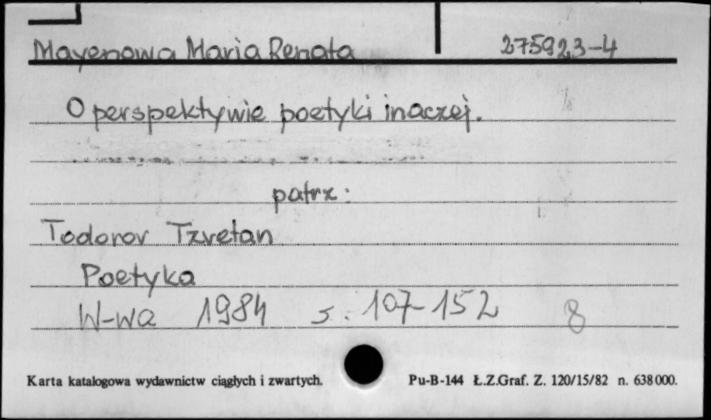 Mayenowa Maria Renata 275923-4
O perspektywie poetyki inaczej.
patrz:
Todorov Tzvetan
Poetyka
W-wa 1984 s. 107-152 8
Karta katalogowa wydawnictw ciągłych i zwartych. Pu-B-144 Ł.Z.Graf. Z. 120/15/82 n. 638000.